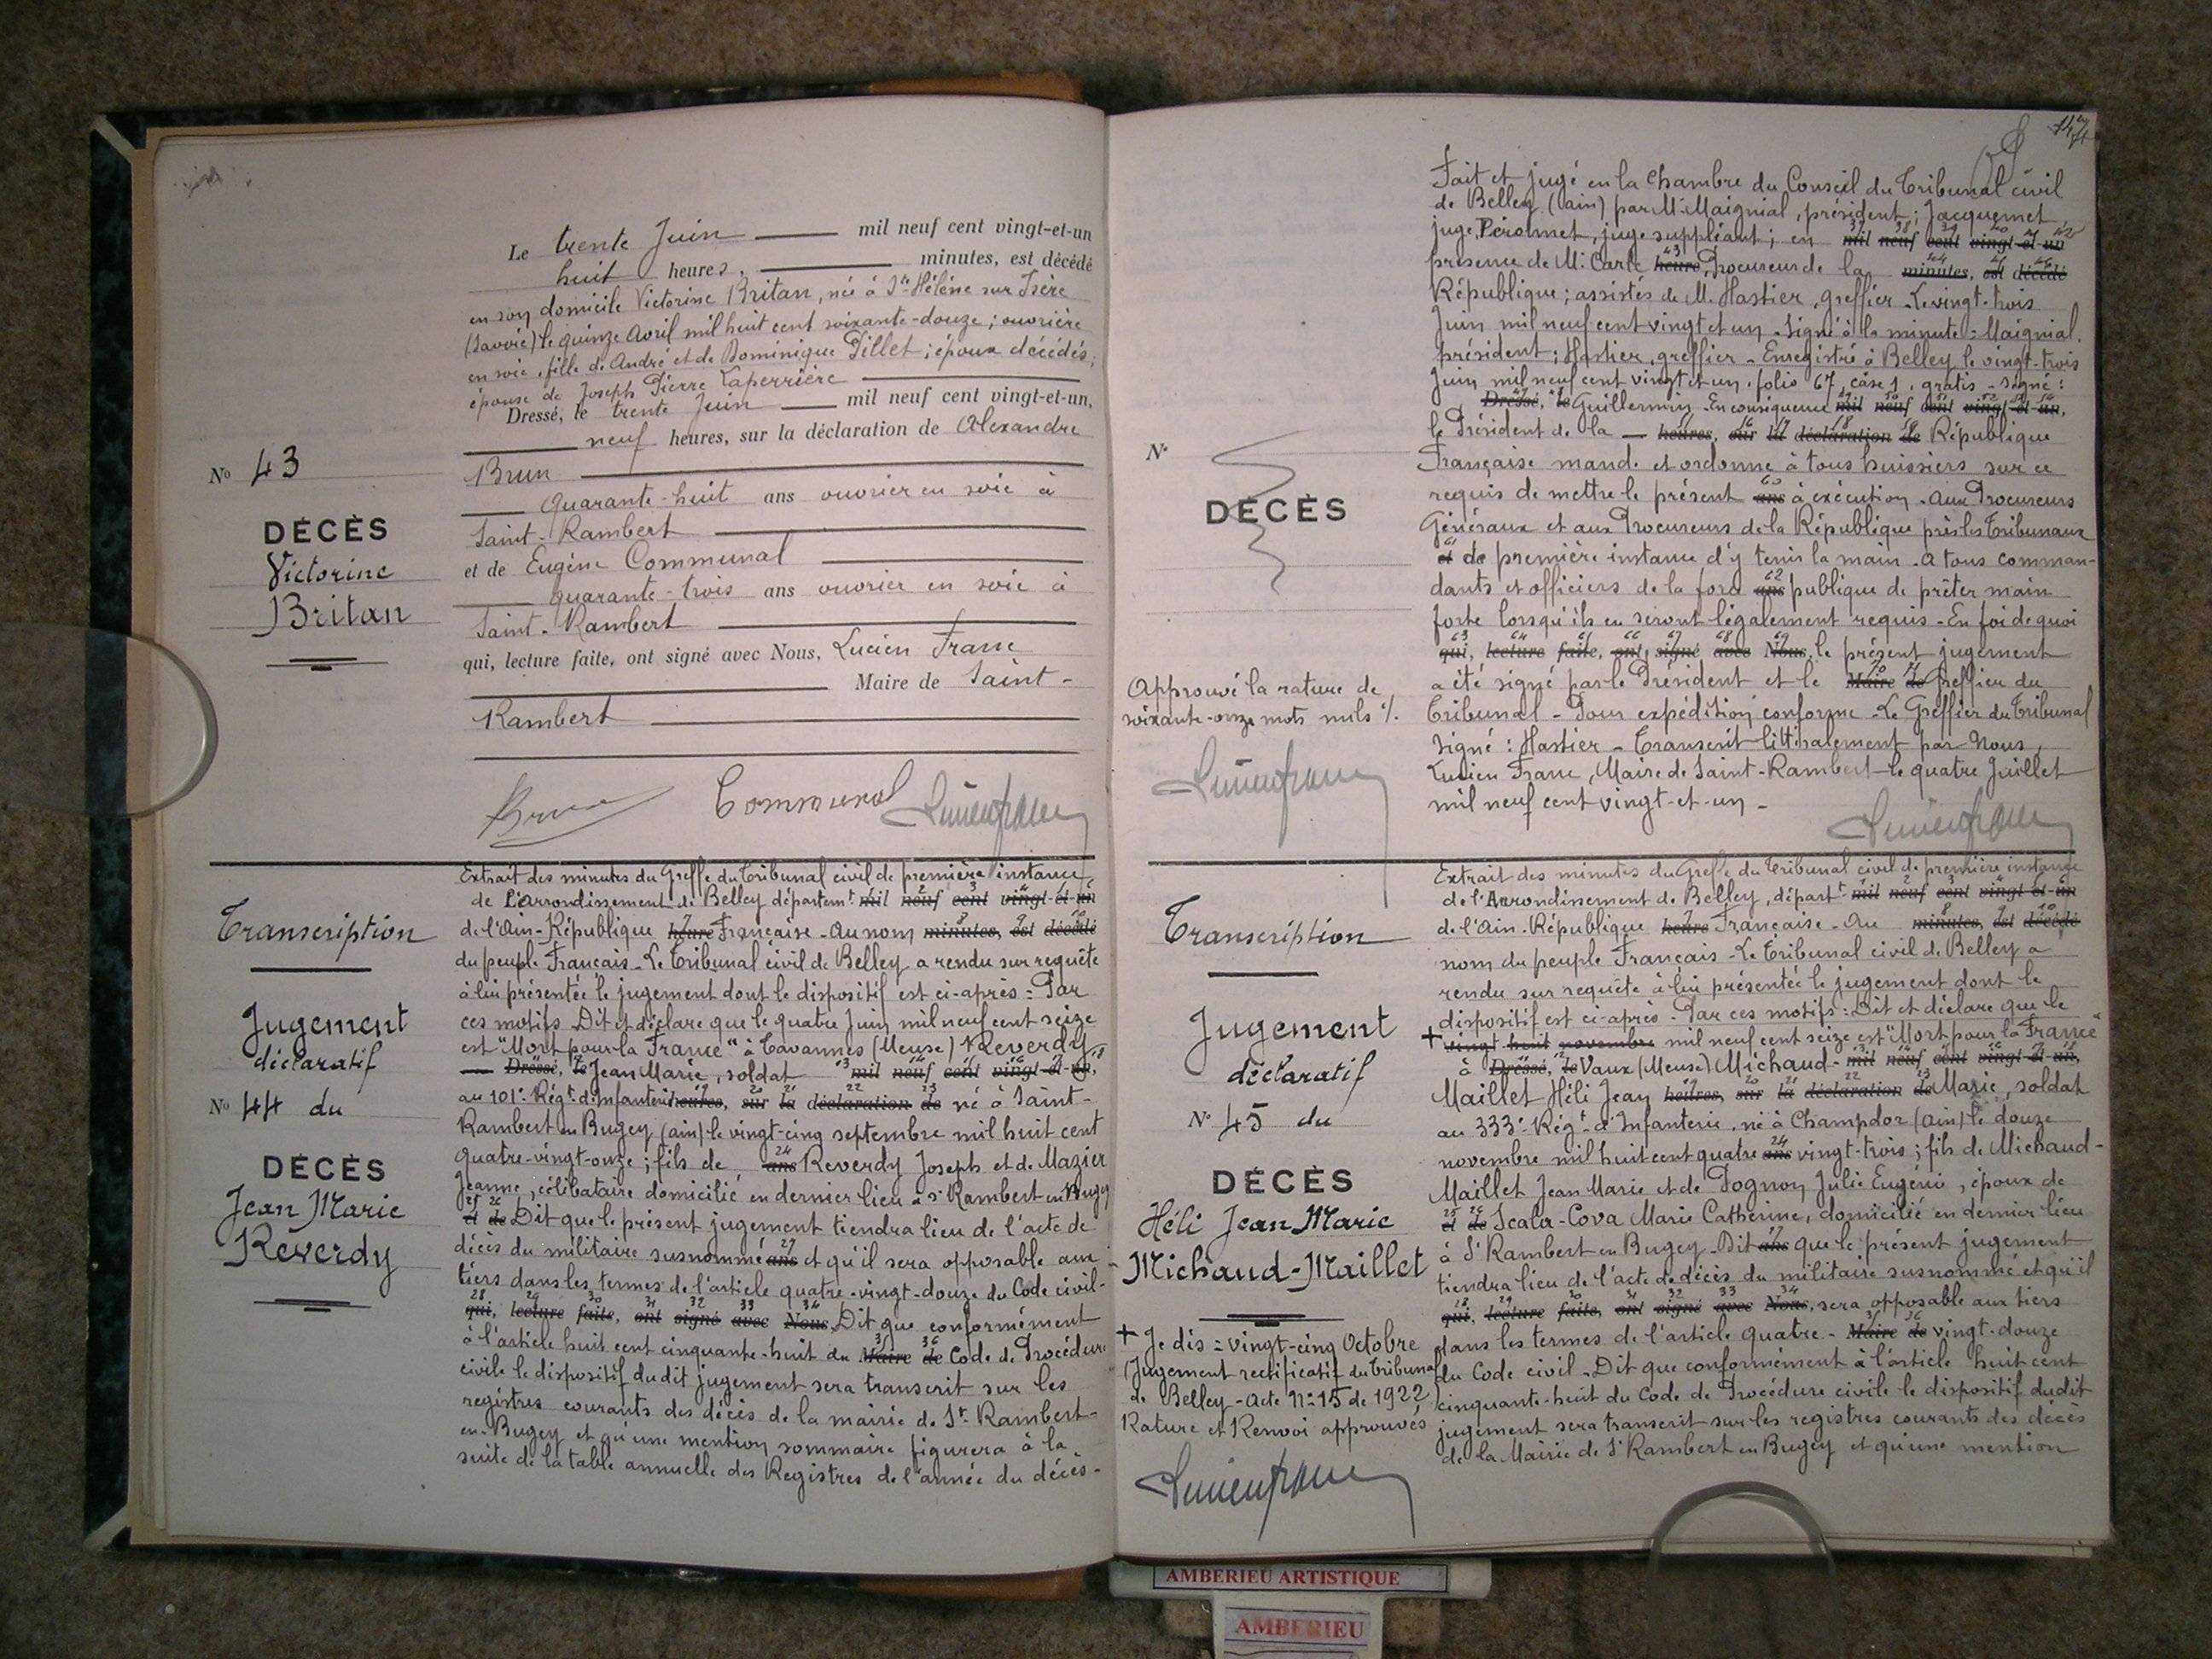 Le trente Juin mil neuf cent vingt-et-un
huit heures, minutes, est décédé
en son domicile Victorine Britan, née à Ste Hélène sur Isère
(Savoie) le quinze Avril mil huit cent soixante-douze ; ouvrière
en soie, fille de André et de Dominique Pillet ; époux décédés ;
épouse de Joseph Pierre Laperrière
Dressé, le trente Juin mil neuf cent vingt-et-un,
neuf heures, sur la déclaration de Alexandre
Brun
quarante-huit ans ouvrier en soie à
Saint-Rambert
et de Eugène Communal
quarante-trois ans ouvrier en soie à
Saint-Rambert
qui, lecture faite, ont signé avec Nous, Lucien Franc
Maire de Saint-
Rambert
No 43
DÉCÈS
Victorine
Britan
Brun Communal Lucien franc
Transcription
Jugement
déclaratif
No 44 du
DÉCÈS
Jean Marie
Réverdy
Extrait des minutes du Greffe du Tribunal civil de première instance,
de l'arrondissement de Belley départemt mil neuf cent vingt-et-un
de l'Ain - République heure Française - Au nom minutes, est décédé
du peuple Français - Le Tribunal civil de Belley a rendu sur requête
à lui présentée le jugement dont le dispositif est ci-après : Par
ces motifs Dit et déclare que le quatre Juin mil neuf cent seize
est "Mort pour la France" à Tavannes (Meuse) Réverdy
Dressé, le Jean Marie, soldat mil neuf cent vingt-et-un,
au 101e Régt d'Infanterie heures, sur la déclaration de né à Saint-
Rambert en Bugey (Ain) le vingt-cinq septembre mil huit cent
quatre-vingt-onze ; fils de ans Reverdy Joseph et de Mazier
Jeanne, célibataire domicilié en dernier lieu à St Rambert en Bugey
et de Dit que le présent jugement tiendra lieu de l'acte de
décès du militaire susnommé ans et qu'il sera opposable aux
tiers dans les termes de l'article quatre-vingt-douze du Code civil -
qui, lecture faite, ont signé avec Nous Dit que conformément
à l'article huit cent cinquante-huit du Maire de Code de Procédure
civile le dispositif dudit jugement sera transcrit sur les
registres courants des décès de la mairie de St Rambert-
en-Bugey et qu'une mention sommaire figurera à la
suite de la table annuelle des Registres de l'année du décès -
Fait et jugé en la Chambre du Conseil du Tribunal civil
de Belley (Ain) par Mr Maignial, président ; Jacquemet,
juge, Péronnet, juge suppléant ; en mil neuf cent vingt-et-un
présence de M. Carle heure Procureur de la minutes, est décédé
République ; assistés de M. Hastier, greffier - Le vingt-trois
Juin mil neuf cent vingt et un - Signé à la minute : Maignial,
président ; Hastier, greffier - Enregistré à Belley le vingt-trois
Juin mil neuf cent vingt et un, folio 67, case 1, gratis - signé :
Dressé, le Guillermin - En conséquence mil neuf cent vingt-et-un,
le Président de la heures, sur la déclaration de République
Française mande et ordonne à tous huissiers sur ce
requis de mettre le présent ans à exécution - Aux Procureurs
Généraux et aux Procureurs de la République près les Tribunaux
et de première instance d'y tenir la main - A tous comman-
dants et officiers de la force ans publique de prêter main
forte lorsqu'ils en seront légalement requis - En foi de quoi
qui, lecture faite, ont signé avec Nous, le présent jugement
a été signé par le Président et le Maire de Greffier du
Tribunal - Pour expédition conforme - Le Greffier du Tribunal
Signé : Hastier - Transcrit littéralement par Nous,
Lucien Franc, Maire de Saint-Rambert le quatre Juillet
mil neuf cent vingt-et-un -
Lucien franc
No
DÉCÈS
Approuvé la rature de
soixante-onze mots nuls
Lucien franc
Transcription
Jugement
déclaratif
No 45 du
DÉCÈS
Héli Jean Marie
Michaud-Maillet
+ Je dis = vingt-cinq Octobre
(Jugement rectificatif du Tribunal
de Belley - Acte No 15 de 1922)
Rature et Renvoi approuvés
Lucien franc
Extrait des minutes du Greffe du Tribunal civil de première instance
de l'Arrondissement de Belley, départt mil neuf cent vingt-et-un
de l'Ain - République heure Française - Au minutes, est décédé
nom du peuple Français - Le Tribunal civil de Belley a
rendu sur requête à lui présentée le jugement dont le
dispositif est ci-après - Par ces motifs : Dit et déclare que le
+ vingt-huit novembre mil neuf cent seize est "Mort pour la France"
à Dressé, le Vaux (Meuse) Michaud- mil neuf cent vingt-et-un,
Maillet Héli Jean heures, sur la déclaration de Marie, soldat
au 333e Régt d'Infanterie, né à Champdor (Ain) le douze
novembre mil huit cent quatre ans vingt-trois ; fils de Michaud-
Maillet Jean Marie et de Pognon Julie Eugénie, époux de
et de Scala-Cova Marie Catherine, domicilié en dernier lieu
à St Rambert en Bugey - Dit ans que le présent jugement
tiendra lieu de l'acte de décès du militaire susnommé et qu'il
qui, lecture faite, ont signé avec Nous, sera opposable aux tiers
dans les termes de l'article quatre- Maire de vingt-douze
du Code civil - Dit que conformément à l'article huit cent
cinquante-huit du Code de Procédure civile le dispositif dudit
jugement sera transcrit sur les registres courants des décès
de la Mairie de St Rambert en Bugey et qu'une mention
AMBERIEU ARTISTIQUE
AMBERIEU